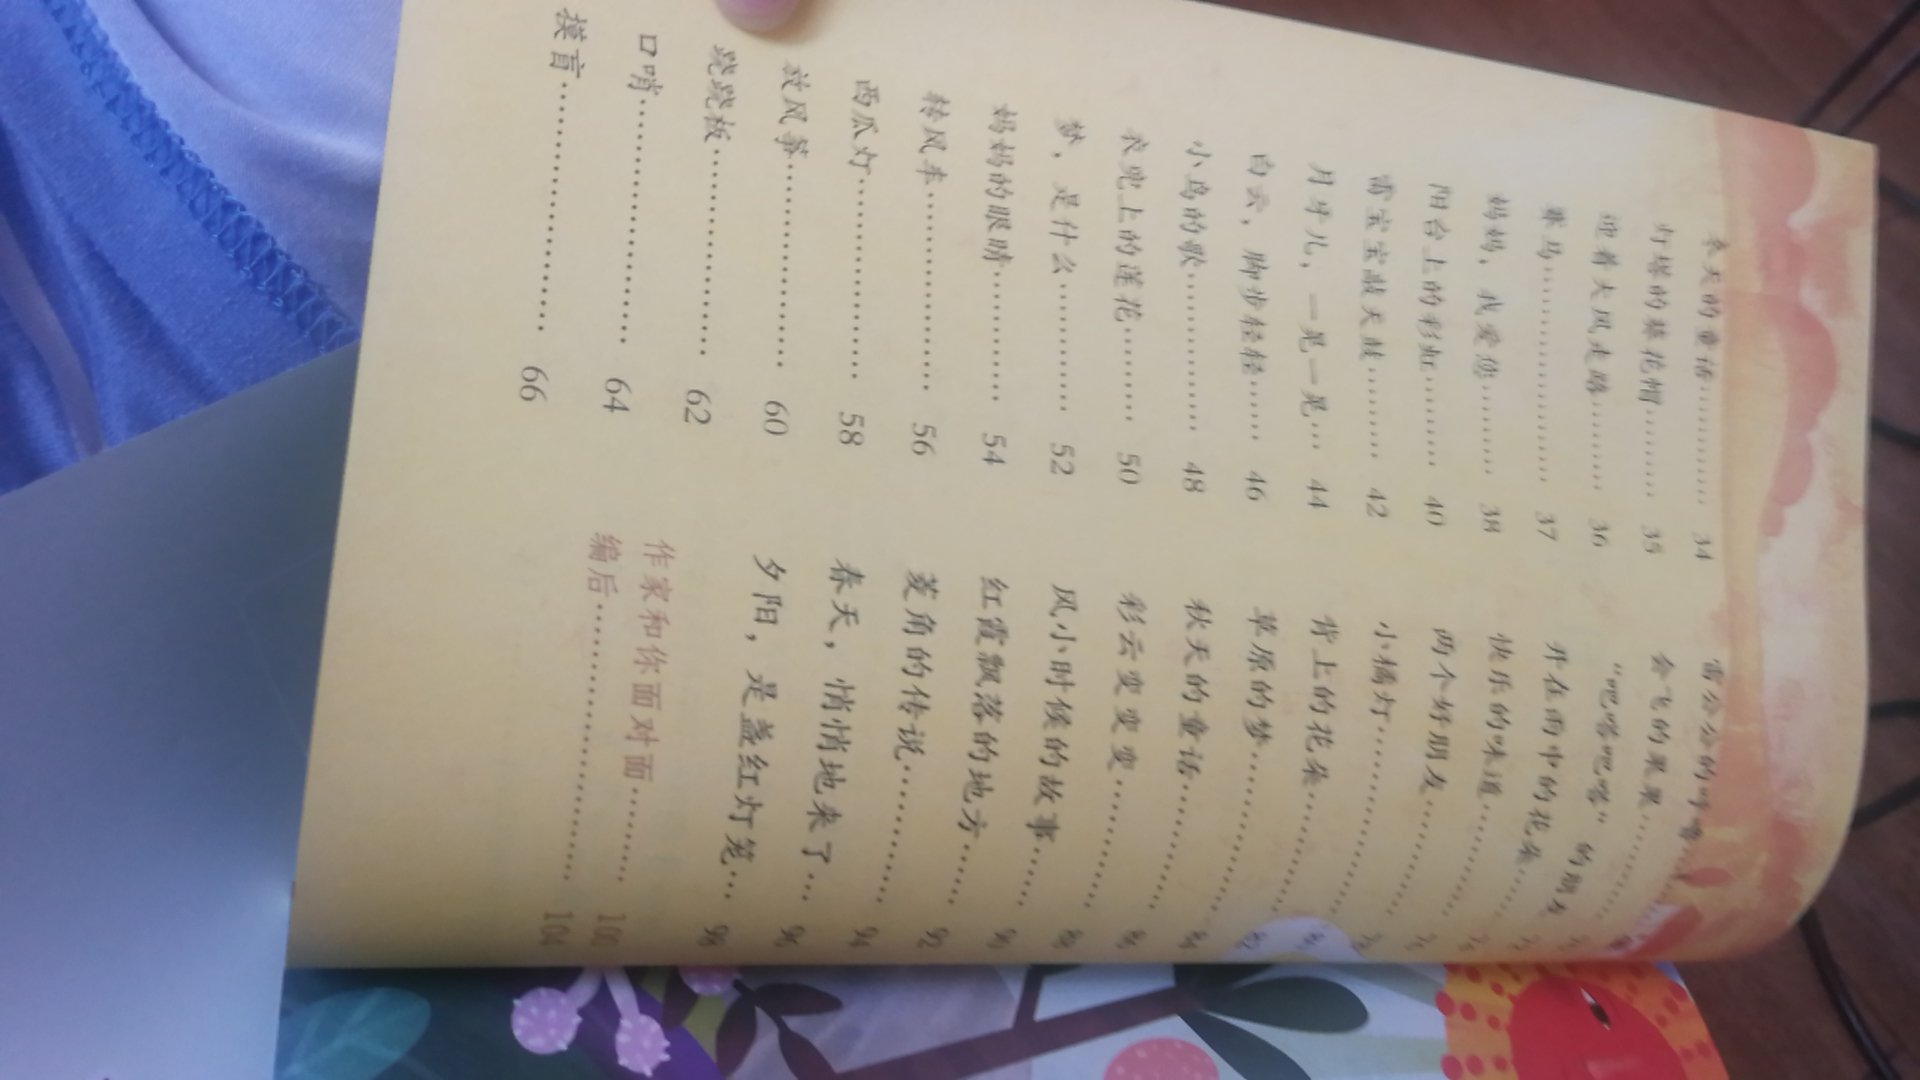 冬天的童话………… 34
灯塔的棉花帽……… 35
迎着大风走路……… 36
赛马………………… 37
妈妈，我爱您……… 38
阳台上的彩虹……… 40
雷宝宝敲天鼓……… 42
月牙儿，一晃一晃… 44
白云，脚步轻轻…… 46
小鸟的歌…………… 48
衣兜上的莲花……… 50
梦，是什么………… 52
妈妈的眼睛………… 54
转风车……………… 56
西瓜灯……………… 58
放风筝……………… 60
跷跷板……………… 62
口哨………………… 64
摸盲………………… 66
雷公公的呼噜
会飞的果果…………
“吧嗒吧嗒”的朋友
开在雨中的花朵……
快乐的味道…………
两个好朋友…………
小橘灯………………
背上的花朵…………
草原的梦…………… 84
秋天的童话………… 86
彩云变变变………… 88
风小时候的故事…… 90
红霞飘落的地方…… 92
菱角的传说………… 94
春天，悄悄地来了… 96
夕阳，是盏红灯笼… 98
作家和你面对面…… 100
编后………………… 104